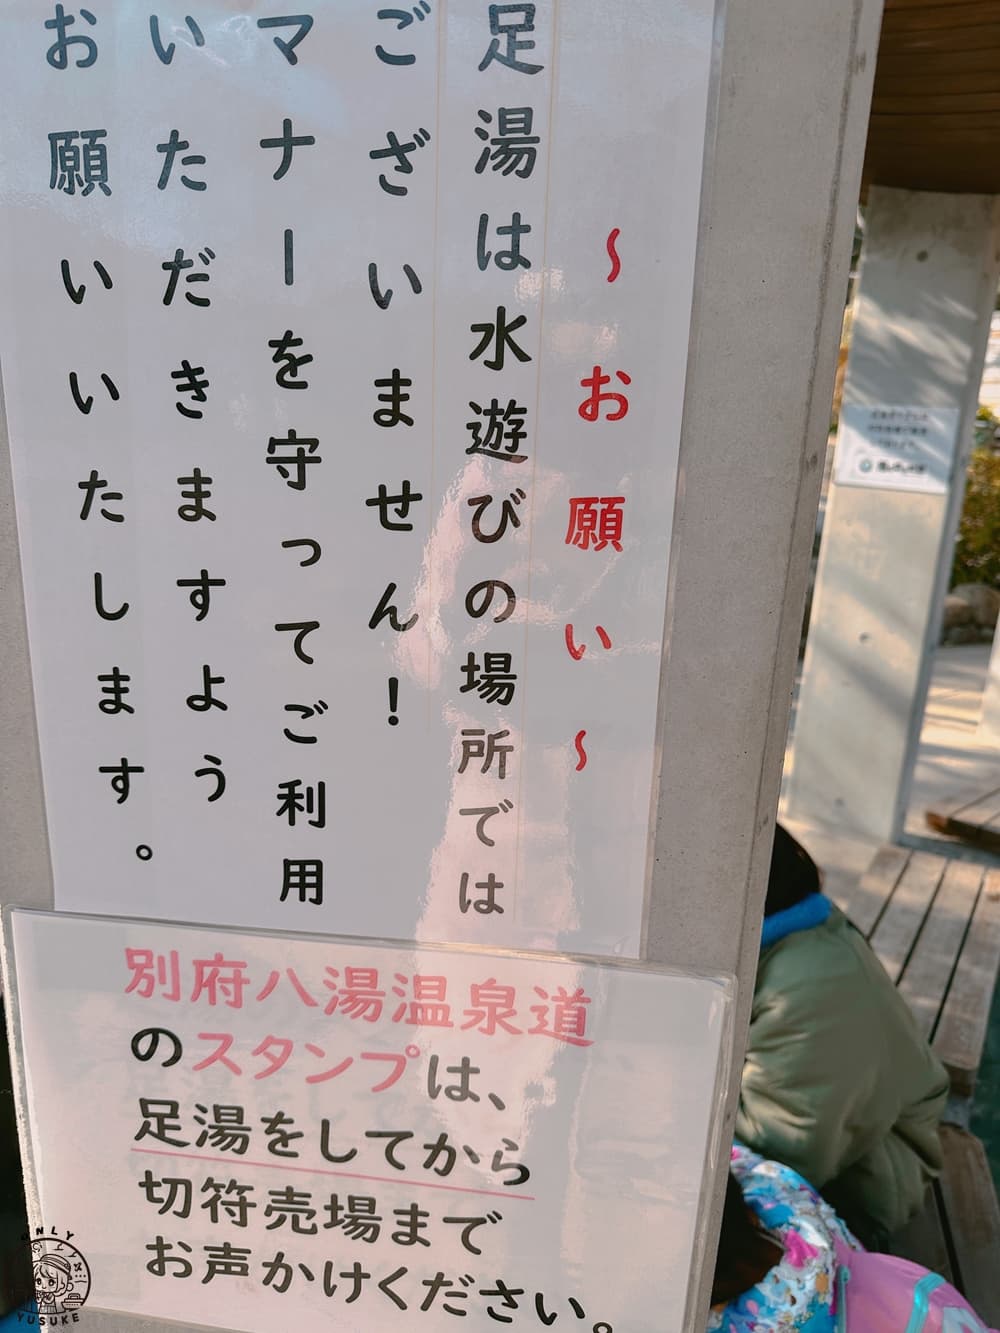 ～お願い～
足湯は水遊びの場所では
ございません！
マナーを守ってご利用
いただきますよう
お願いいたします。
別府八湯温泉道
のスタンプは、
足湯をしてから
切符売場まで
お声かけください。
ONLY
YUSUKE